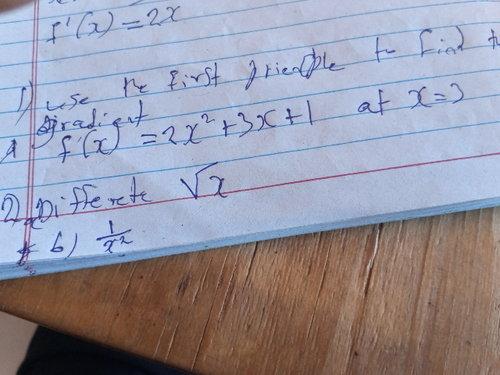 f'(x) = 2x
1) use the first principle to find the
gradient
f(x) = 2x² + 3x + 1 at x = 3
2) a Differete √x
b) 1/x²